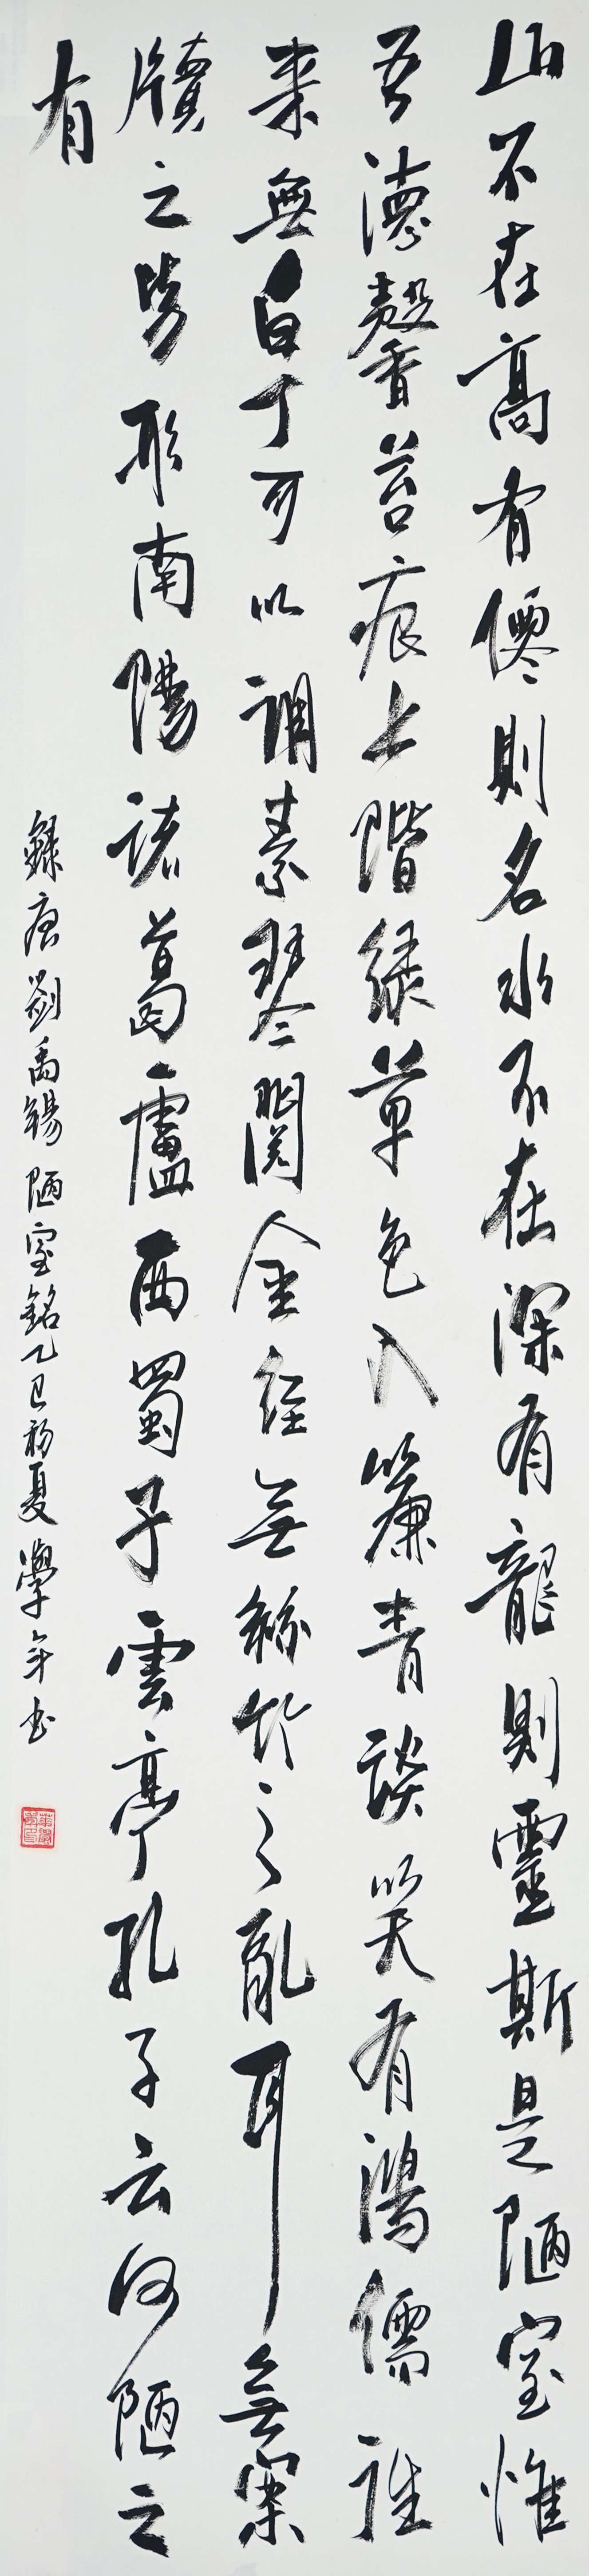 山不在高有僊則名水不在深有龍則靈斯是陋室惟
吾德馨苔痕上階綠草色入簾青談笑有鴻儒往
来無白丁可以調素琴閱金經無絲竹之亂耳無案
牘之勞形南陽諸葛廬西蜀子雲亭孔子云何陋之
有
錄唐劉禹錫陋室銘乙巳初夏學年书